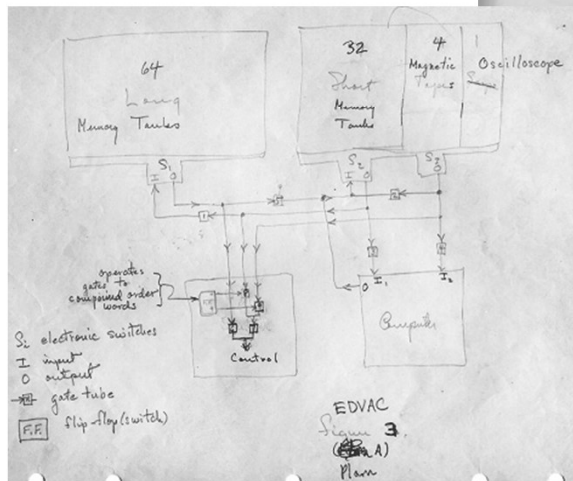 64
Long
Memory Tanks
32
Short
Memory
Tanks
4
Magnetic
Tapes
1
Oscilloscope
S1
I O
S2
I O
S3
O
operates
gates to
compound order
words
Control
O I1 I2
Computer
S2 electronic switches
I input
O output
gate tube
F.F. flip-flop (switch)
EDVAC
figure 3
A)
Plan